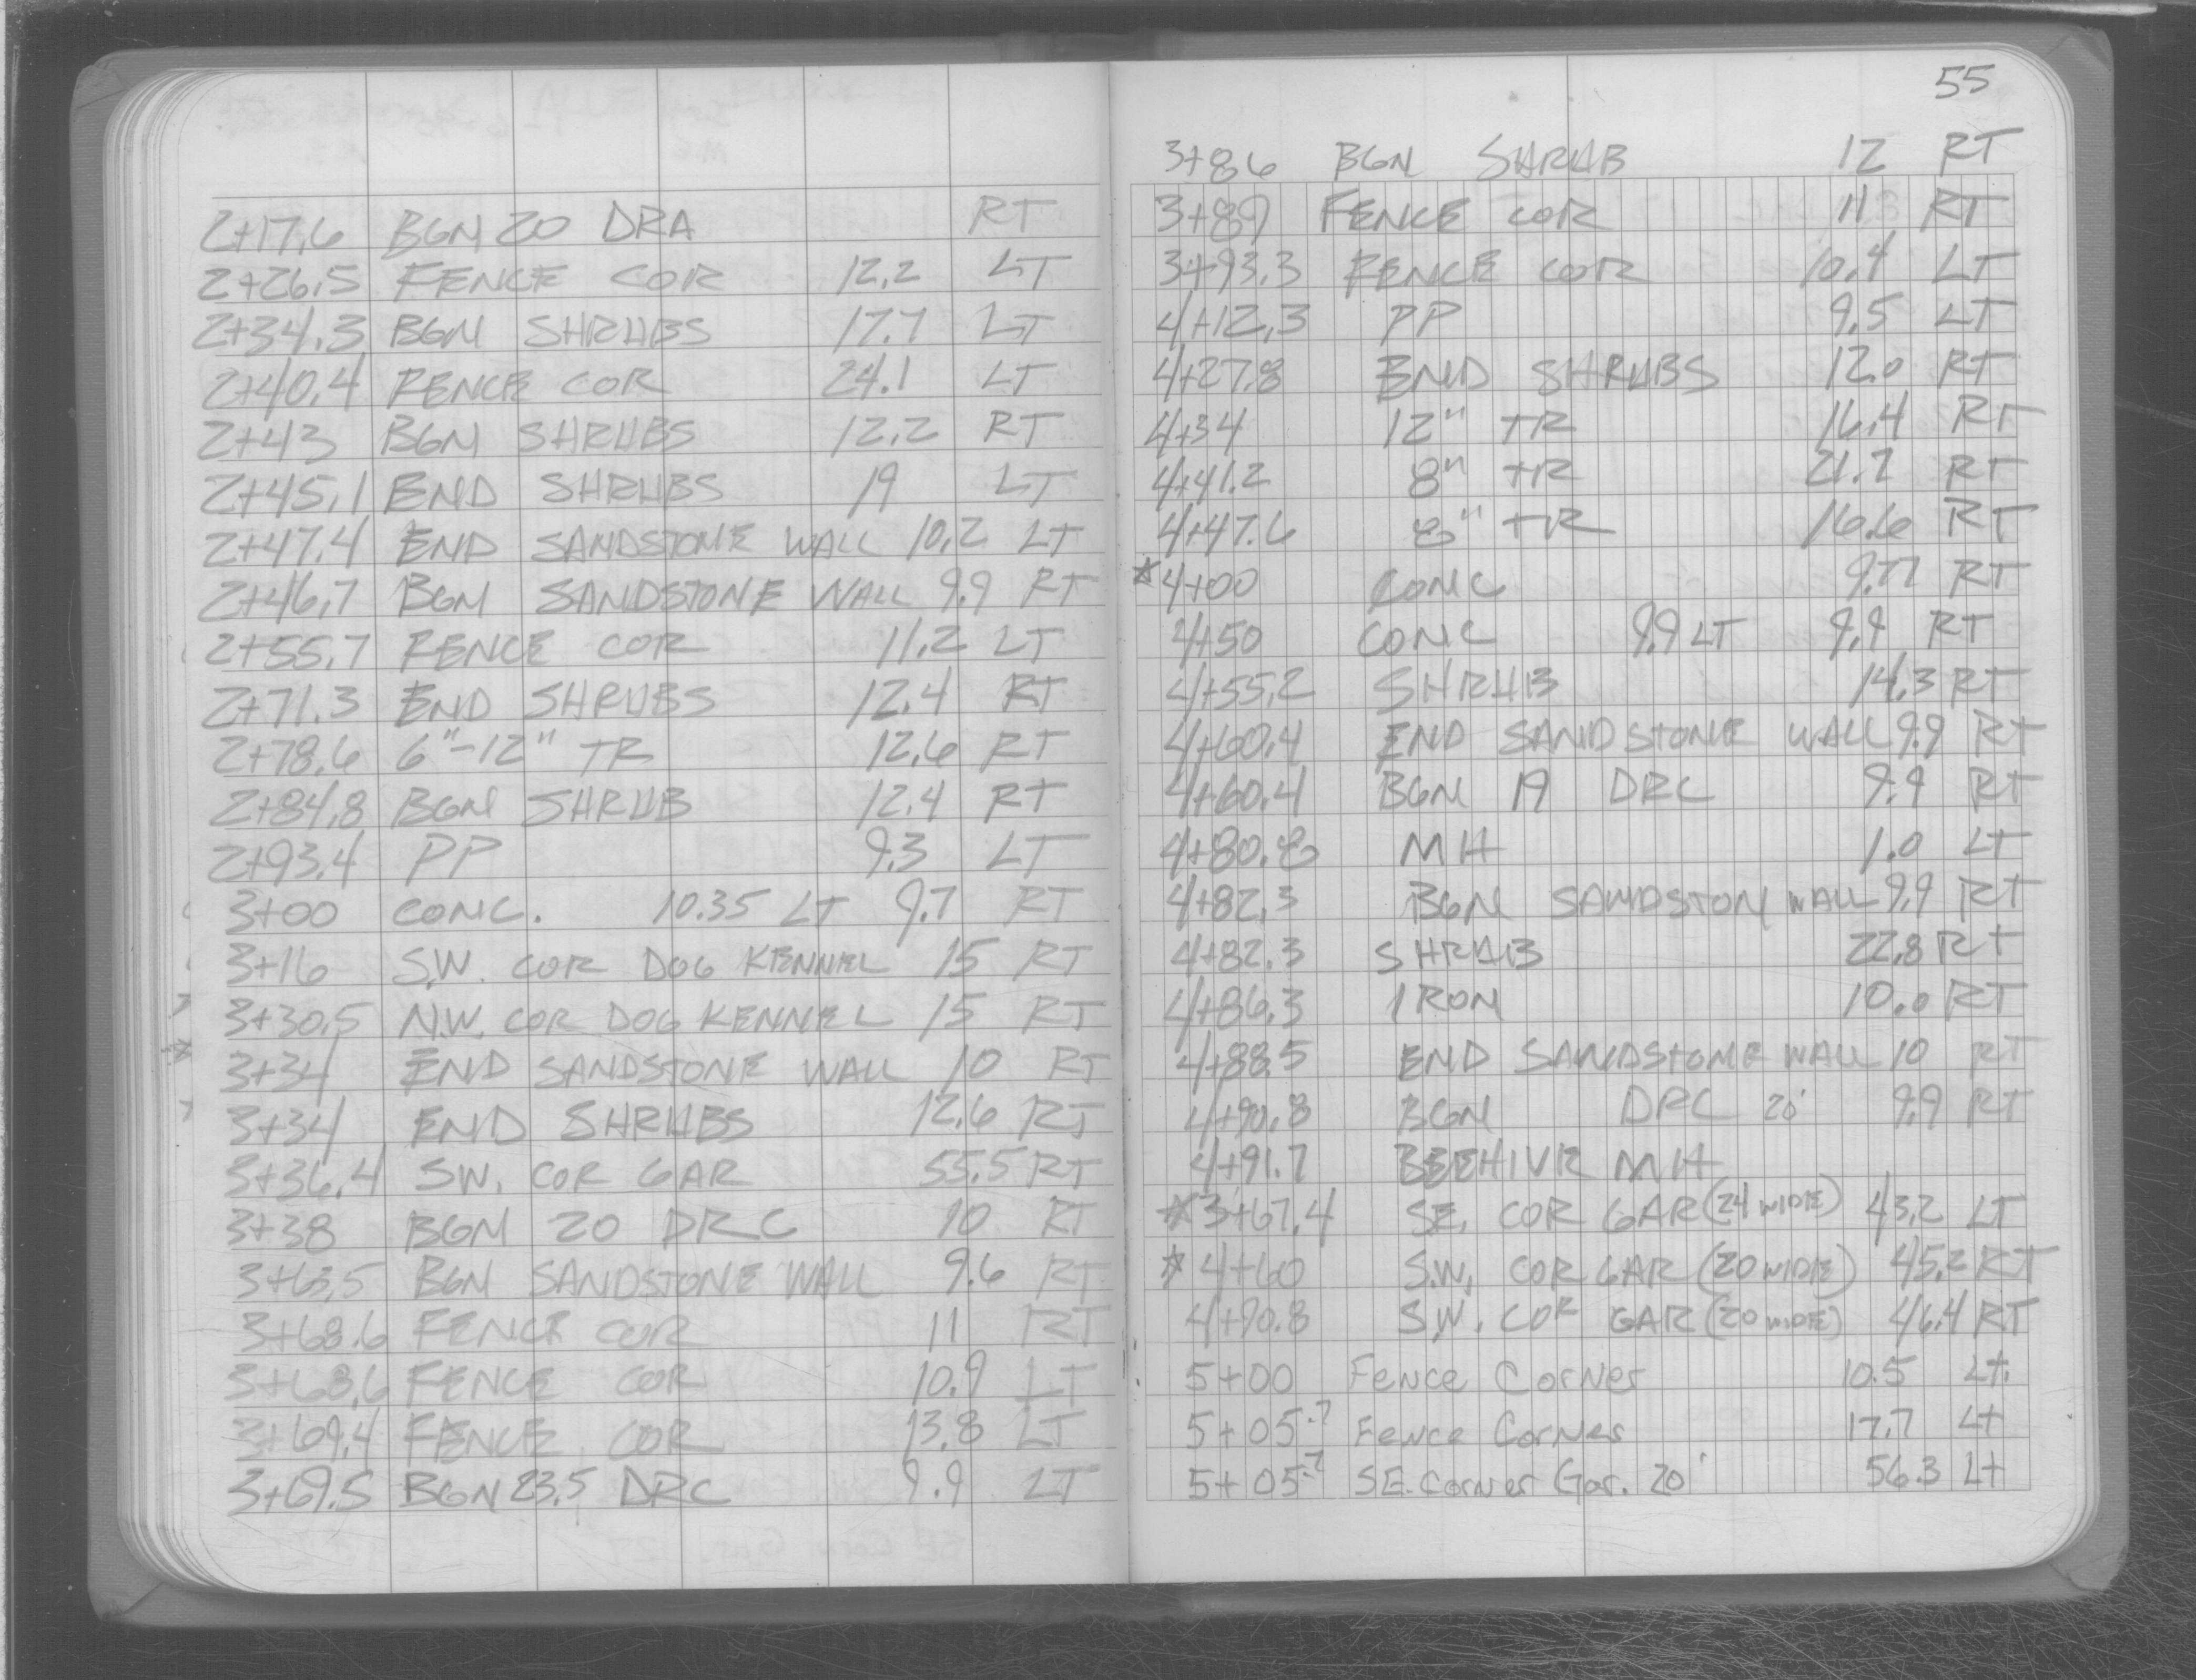 2+17.6 BGN 20 DRA RT
2+26.5 FENCE COR 12.2 LT
2+34.3 BGN SHRUBS 17.7 LT
2+40.4 FENCE COR 24.1 LT
2+43 BGN SHRUBS 12.2 RT
2+45.1 END SHRUBS 19 LT
2+47.4 END SANDSTONE WALL 10.2 LT
2+46.7 BGN SANDSTONE WALL 9.9 RT
2+55.7 FENCE COR 11.2 LT
2+71.3 END SHRUBS 12.4 RT
2+78.6 6"-12" TR 12.6 RT
2+84.8 BGN SHRUB 12.4 RT
2+93.4 PP 9.3 LT
3+00 CONC. 10.35 LT 9.7 RT
3+16 S.W. COR DOG KENNEL 15 RT
3+30.5 N.W. COR DOG KENNEL 15 RT
3+34 END SANDSTONE WALL 10 RT
3+34 END SHRUBS 12.6 RT
3+36.4 SW. COR GAR 55.5 RT
3+38 BGN 20 DRC 10 RT
3+63.5 BGN SANDSTONE WALL 9.6 RT
3+68.6 FENCE COR 11 RT
3+68.6 FENCE COR 10.9 LT
3+69.4 FENCE COR 13.8 LT
3+69.5 BGN 23.5 DRC 9.9 LT
55
3+86 BGN SHRUB 12 RT
3+89 FENCE COR 11 RT
3+93.3 FENCE COR 10.4 LT
4+12.3 PP 9.5 LT
4+27.8 END SHRUBS 12.0 RT
4+34 12" TR 16.4 RT
4+41.2 8" TR RT
4+47.6 8" TR 16.6 RT
*4+00 CONC 9.77 RT
4+50 CONC 9.9 LT 9.9 RT
4+55.2 SHRUB 14.3 RT
4+60.4 END SANDSTONE WALL 9.9 RT
4+60.4 BGN 19 DRC 9.9 RT
4+80.8 MH 1.0 LT
4+82.3 BGN SANDSTON WALL 9.9 RT
4+82.3 SHRUB 22.8 RT
4+86.3 IRON 10.0 RT
4+88.5 END SANDSTONE WALL 10 RT
4+90.8 BGN DRC 20' 9.9 RT
4+91.7 BEEHIVE MH
*3+67.4 SE. COR GAR (24 WIDE) 43.2 LT
*4+60 S.W. COR GAR (20 WIDE) 45.2 RT
4+90.8 S.W. COR GAR (20 WIDE) 46.4 RT
5+00 Fence Corner 10.5 Lt.
5+05.7 Fence Corner 17.7 Lt
5+05.7 SE. Corner Gar. 20' 56.3 Lt